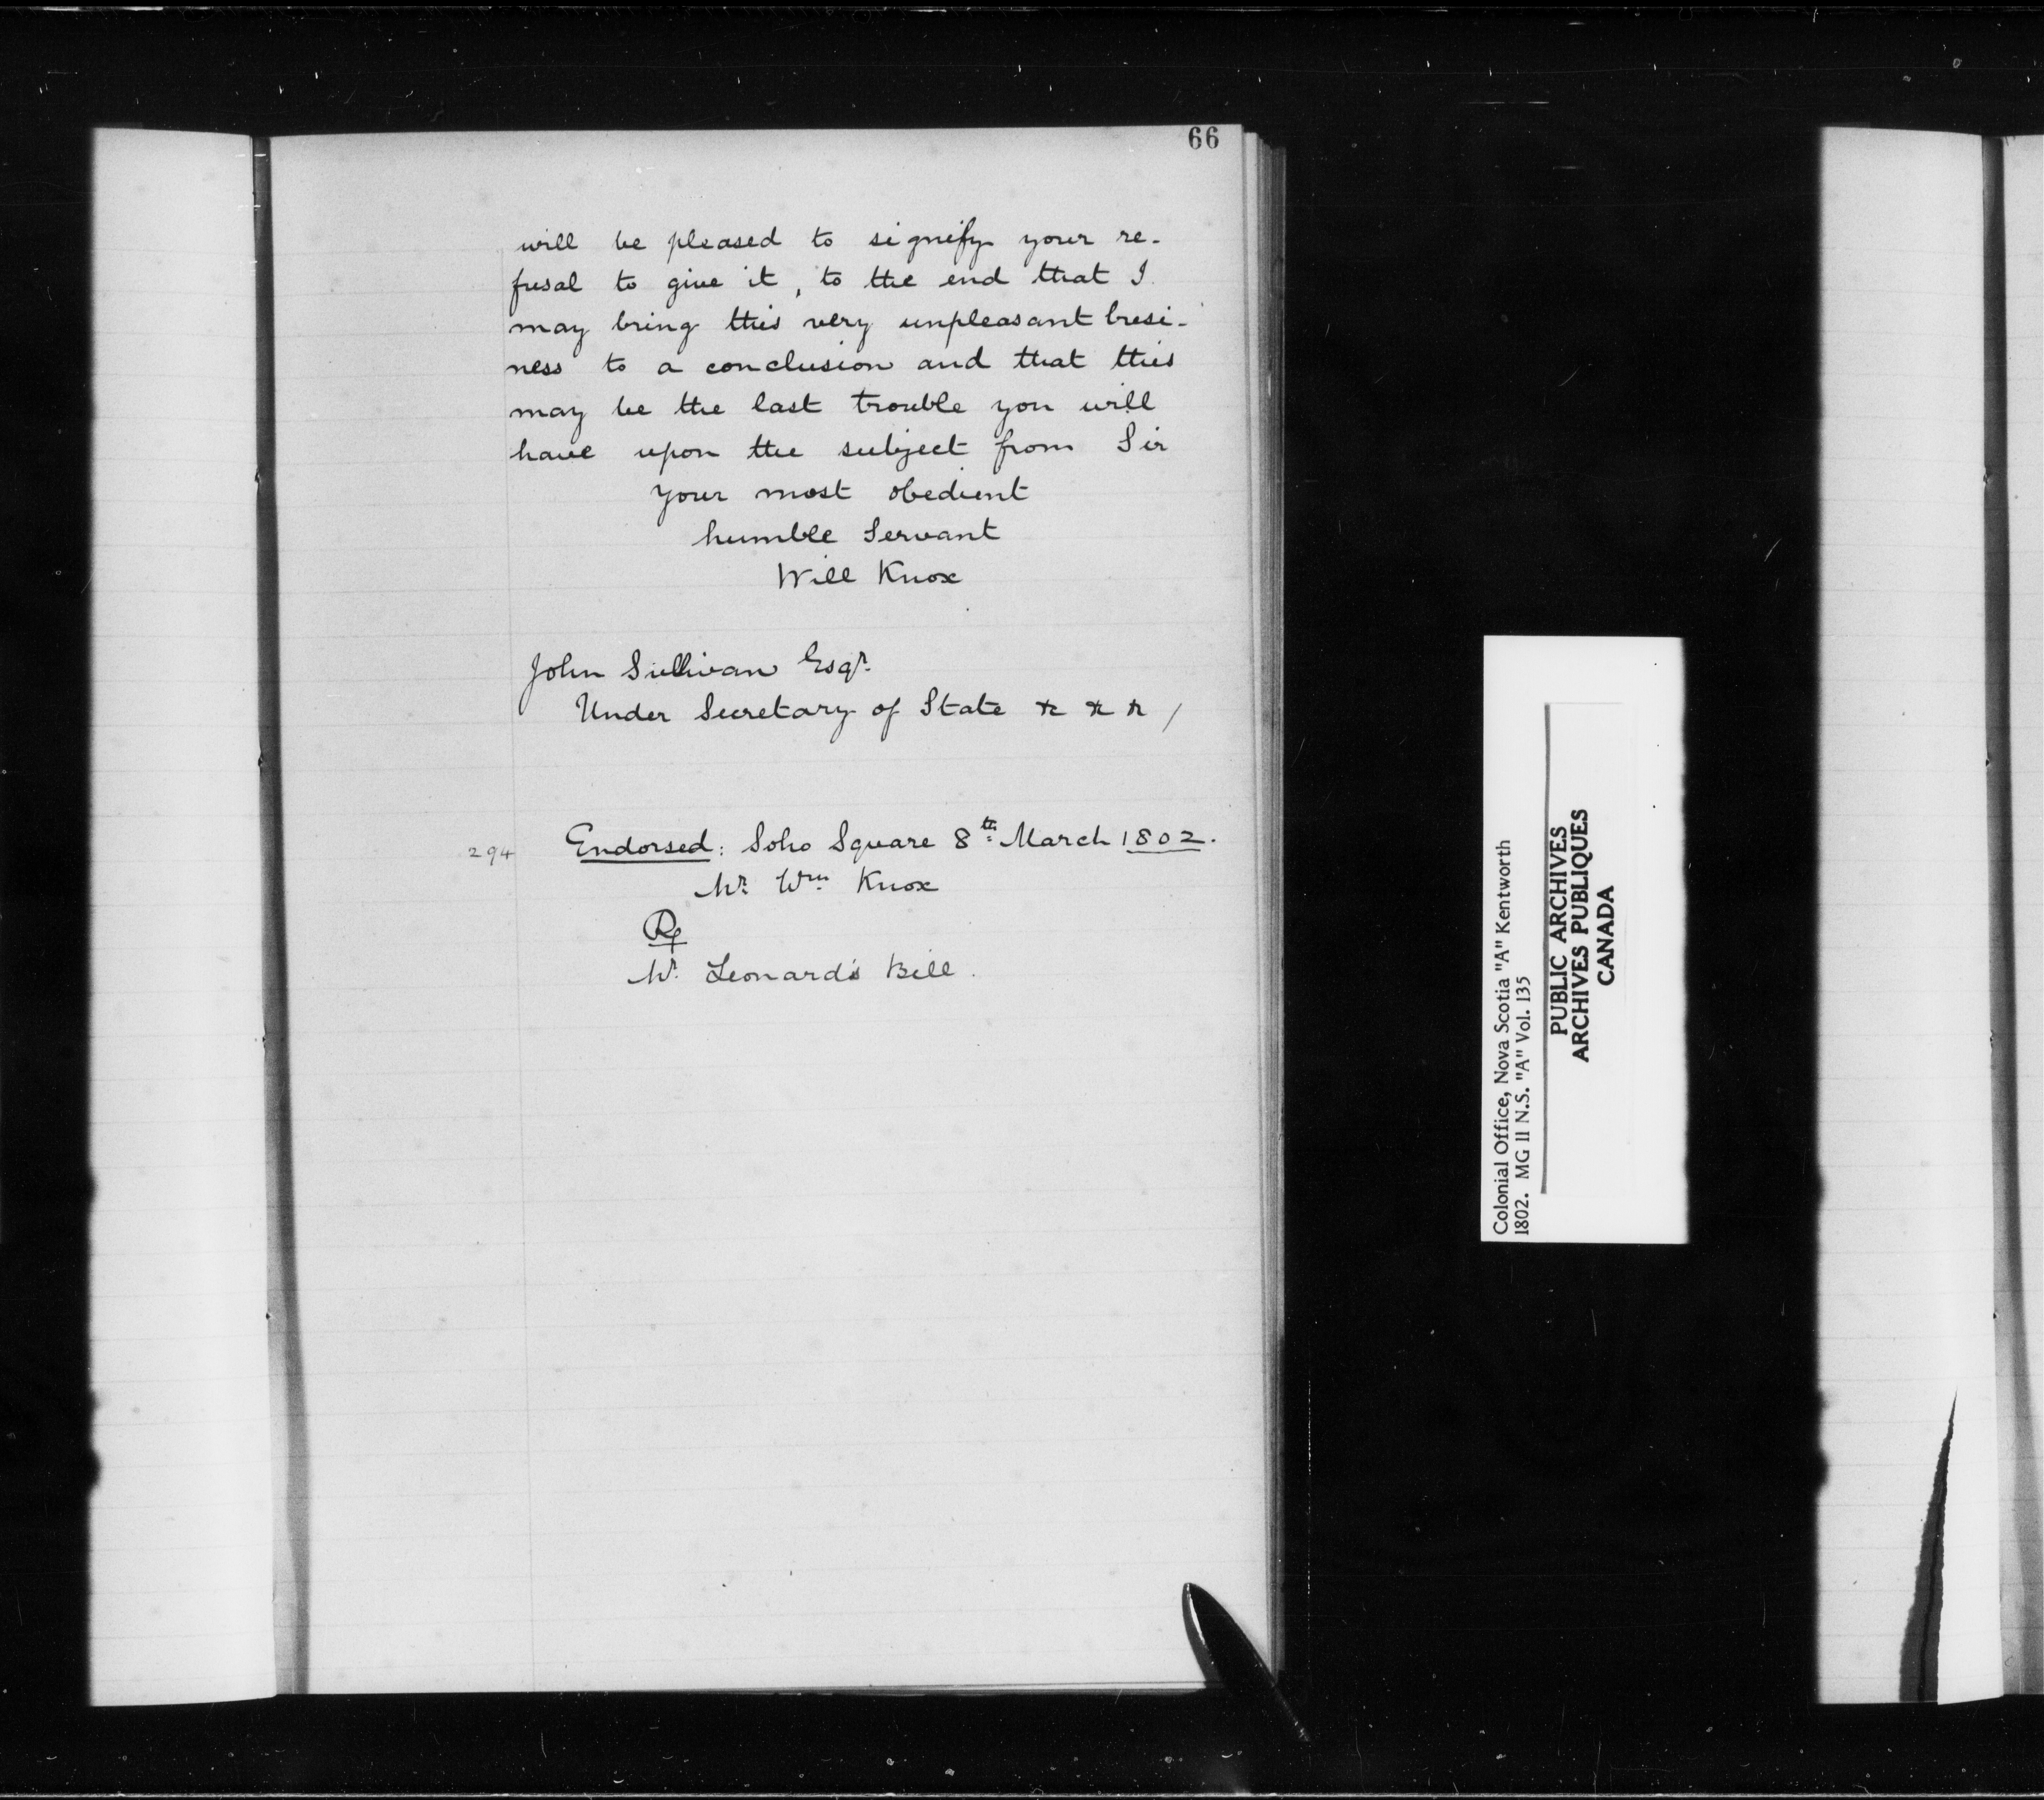 66
will be pleased to signify your re-
fusal to give it, to the end that I
may bring this very unpleasant busi-
ness to a conclusion and that this
may be the last trouble you will
have upon the subject from Sir
your most obedient
humble Servant
Will Knox
John Sullivan Esqr.
Under Secretary of State &c &c &c /
294 Endorsed: Soho Square 8th March 1802.
Mr. Wm. Knox
R
Mr. Leonard's Bill.
Colonial Office, Nova Scotia "A" Kentworth
1802. MG 11 N.S. "A" Vol. 135
PUBLIC ARCHIVES
ARCHIVES PUBLIQUES
CANADA